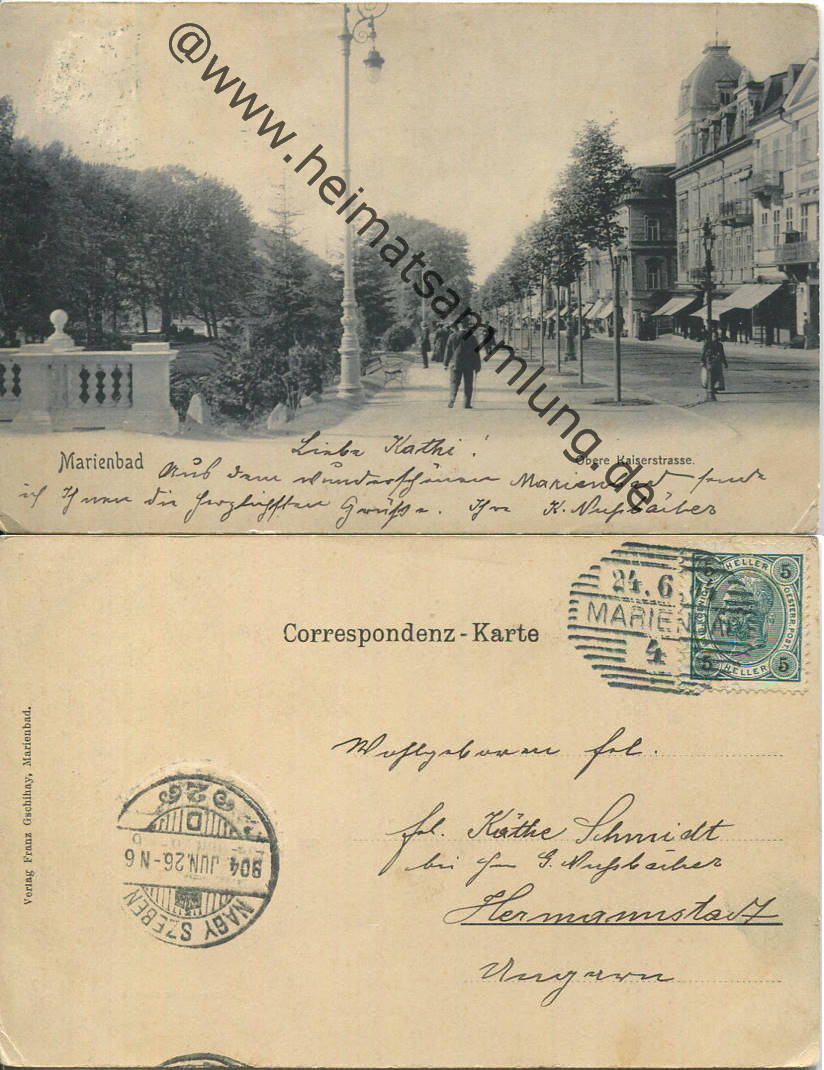 @www.heimatsammlung.de
Liebe Kathi!
Marienbad
Obere Kaiserstrasse.
Aus dem wunderschönen Marienbad sende
ich Ihnen die herzlichsten Grüße. Ihre K. Nußbächer
Correspondenz-Karte
24.6
MARIENBAD
4
5 HELLER 5
5 HELLER 5
OESTERR. POST
Wohlgeboren frl.
frl. Käthe Schmidt
bei G. Nußbächer
Hermannstadt
Ungarn
NAGY SZEBEN
904 JUN. 26-N 6
D
Verlag Franz Gschihay, Marienbad.